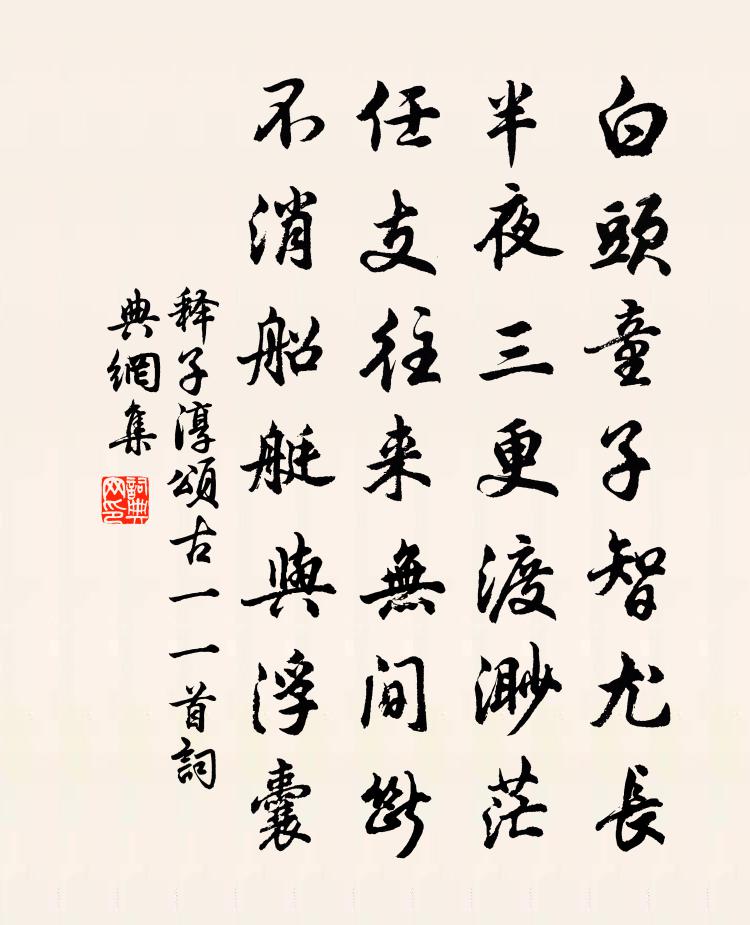 白頭童子智尤長
半夜三更渡渺茫
任支往来無間斷
不消船艇與浮囊
释子淳頌古一一首詞
典網集
詞典网印